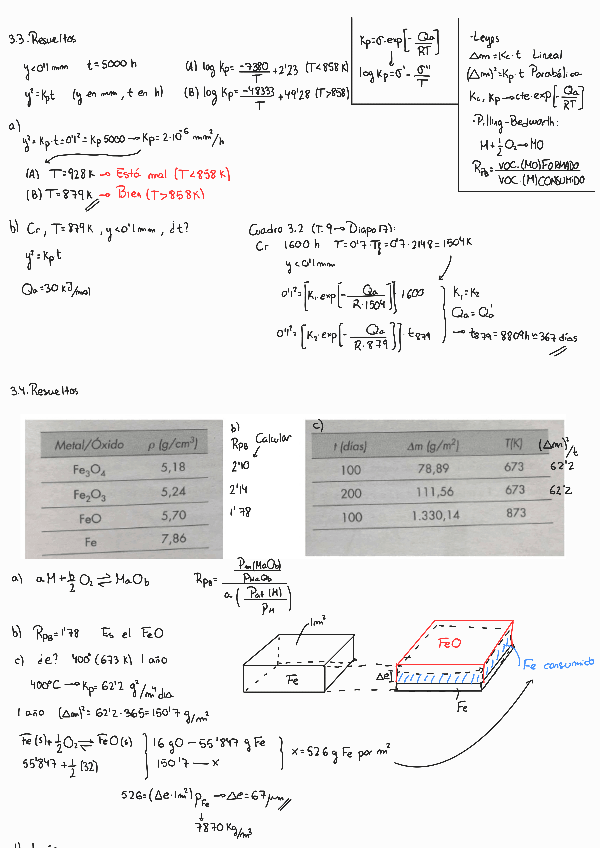 3.3. Resueltos
y<0'1 mm   t=5000 h
y²=Kpt   (y en mm, t en h)
(A) log Kp= -7380/T +2'23 (T<858 K)
(B) log Kp= -48333/T +49'28 (T>858)
Kp=σ·exp[-Qa/RT]
log Kp=σ'-σ''/T
·Leyes
Δm=Kc·t Lineal
(Δm)²=Kp·t Parabólica
Kc, Kp→cte·exp[-Qa/RT]
·Pilling-Bedworth:
M+½O₂→MO
RPB= VOC.(MO)FORMADO / VOC.(M)CONSUMIDO
a)
y²=Kp·t=0'1²=Kp 5000→Kp=2·10⁻⁶ mm²/h
(A) T=928K → Está mal (T<858K)
(B) T=879K → Bien (T>858K)
b) Cr, T=879K, y<0'1mm, ¿t?
y²=Kpt
Qa=30 KJ/mol
Cuadro 3.2 (T.9→Diapo17):
Cr   1600 h   T=0'7 Tf=0'7·2148=1504K
y<0'1mm
0'1²=[K₁·exp[-Qa/R·1504]]·1600
0'1²=[K₂·exp[-Qa/R·879]]·t879
K₁=K₂
Qa=Qa'
→ t879=8809h≃367 días
3.4. Resueltos
Metal/Óxido   ρ (g/cm³)
Fe₃O₄   5,18
Fe₂O₃   5,24
FeO   5,70
Fe   7,86
b)
RPB   Calcular
2'10
2'14
1'78
c)
t (días)   Δm (g/m²)   T(K)   (Δm)²/t
100   78,89   673   62'2
200   111,56   673   62'2
100   1.330,14   873
a) aM+b/2 O₂⇌MaOb
RPB= (Pm(MaOb)/ρMaOb) / (a(Pat(M)/ρM))
b) RPB=1'78   Es el FeO
c) ¿e? 400° (673 K) 1 año
400°C → Kp=62'2 g²/m⁴dia
1 año   (Δm)²=62'2·365=150'7 g/m²
Fe(s)+½O₂⇌FeO(s)
55'847+½(32)
16 gO — 55'847 g Fe
150'7 — x
x=526 g Fe por m²
526=(Δe·1m²)ρFe →Δe=67μm
7870 Kg/m³
1m²
Fe
Δe
FeO
Fe consumido
Fe